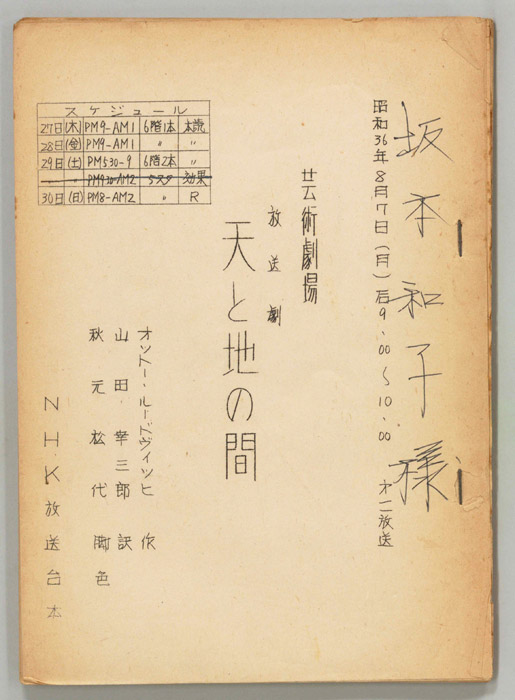 坂本和子様
昭和36年8月7日(月)后9.00〜10.00 才二放送
芸術劇場
放送劇
天と地の間
オットー・ルードヴィッヒ 作
山田幸三郎 訳
秋元松代 脚色
NHK放送台本
スケジュール
27日(木) PM9-AM1 6階1本 本読
28日(金) PM9-AM1 〃 〃
29日(土) PM530-9 6階2本 〃
〃 〃 PM930-AM2 5スタ 効果
30日(日) PM8-AM2 〃 R